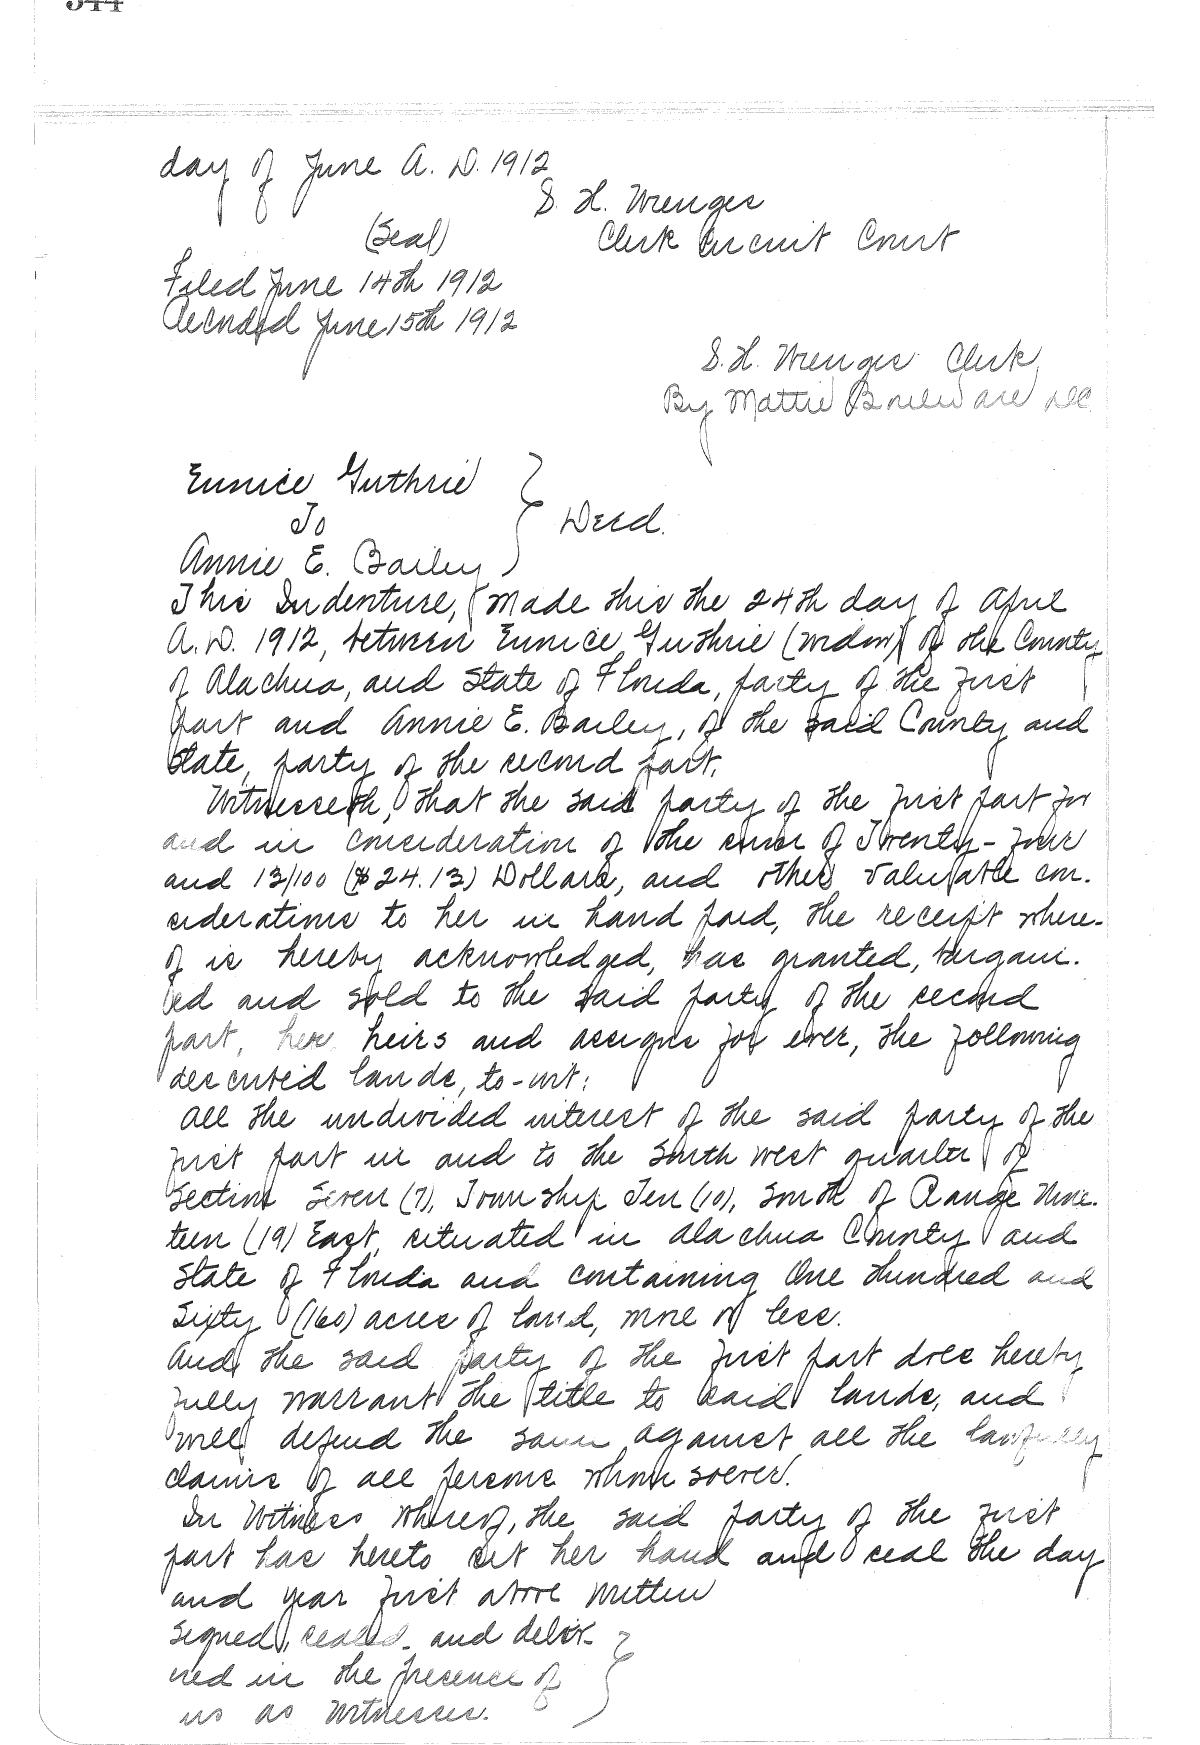 344
day of June A. D. 1912
S. H. Wienges
(Seal) Clerk Circuit Court
Filed June 14th 1912
Recorded June 15th 1912
S. H. Wienges Clerk
By Mattie Bouleware D.C.
Eunice Guthrie
To } Deed.
Annie E. Bailey
This Indenture, Made this the 24th day of April
A. D. 1912, between Eunice Guthrie (widow) of the County
of Alachua, and State of Florida, party of the first
part and Annie E. Bailey, of the said County and
State, party of the second part.
Witnesseth, that the said party of the first part for
and in consideration of the sum of Twenty-four
and 13/100 ($24.13) Dollars, and other valuable con-
siderations to her in hand paid, the receipt where-
of is hereby acknowledged, has granted, bargain-
ed and sold to the said party of the second
part, her heirs and assigns for ever, the following
described lands, to-wit:
All the undivided interest of the said party of the
first part in and to the South west quarter of
Section Seven (7), Township Ten (10), South of Range Nine-
teen (19) East, situated in Alachua County and
State of Florida and containing One Hundred and
Sixty (160) acres of land, more or less.
And the said party of the first part does hereby
fully warrant the title to said lands, and
will defend the same against all the lawfully
claims of all persons whom soever.
In Witness whereof, the said party of the first
part has hereto set her hand and seal the day
and year first above written
Signed, sealed and deliv-
ered in the presence of
us as witnesses.